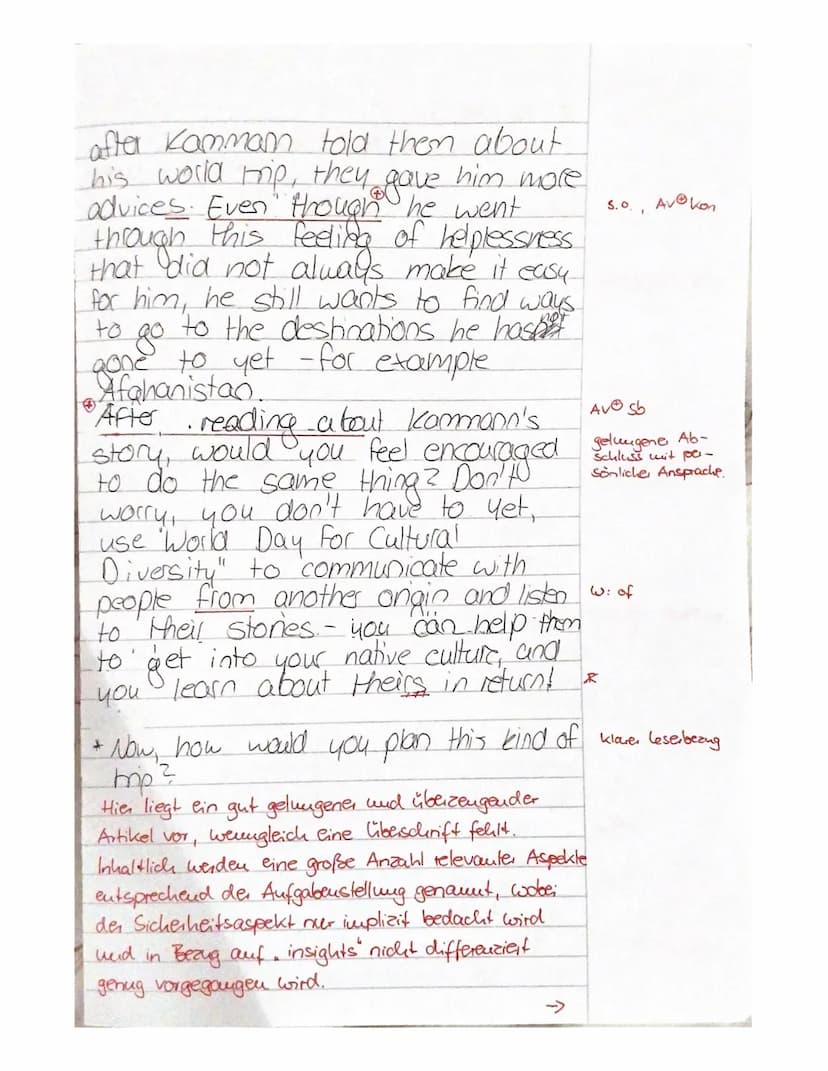 after Kammann told them about
his world trip, they gave him more
advices. Even though he went
s.o., AV⊕ kon
though this feeling of helplessness
that did not always make it easy
for him, he still wants to find ways
to go to the destinations he has not
gone to yet - for example
Afghanistan.
After reading about Kammann's
AV⊕ sb
story, would you feel encouraged
gelungener Ab-
schluss mit per-
sönlicher Ansprache.
to do the same thing? Don't
worry, you don't have to yet,
use "World Day For Cultural
Diversity" to communicate with
people from another origin and listen
W: of
to their stories - you can help them
to get into your native culture, and
you learn about theirs in return!
R
* Now, how would you plan this kind of
klarer Leserbezug
trip?
Hier liegt ein gut gelungener und überzeugender
Artikel vor, wenngleich eine Überschrift fehlt.
Inhaltlich werden eine große Anzahl relevanter Aspekte
entsprechend der Aufgabenstellung genannt, wobei
der Sicherheitsaspekt nur implizit bedacht wird
und in Bezug auf „insights“ nicht differenziert
genug vorgegangen wird.
→